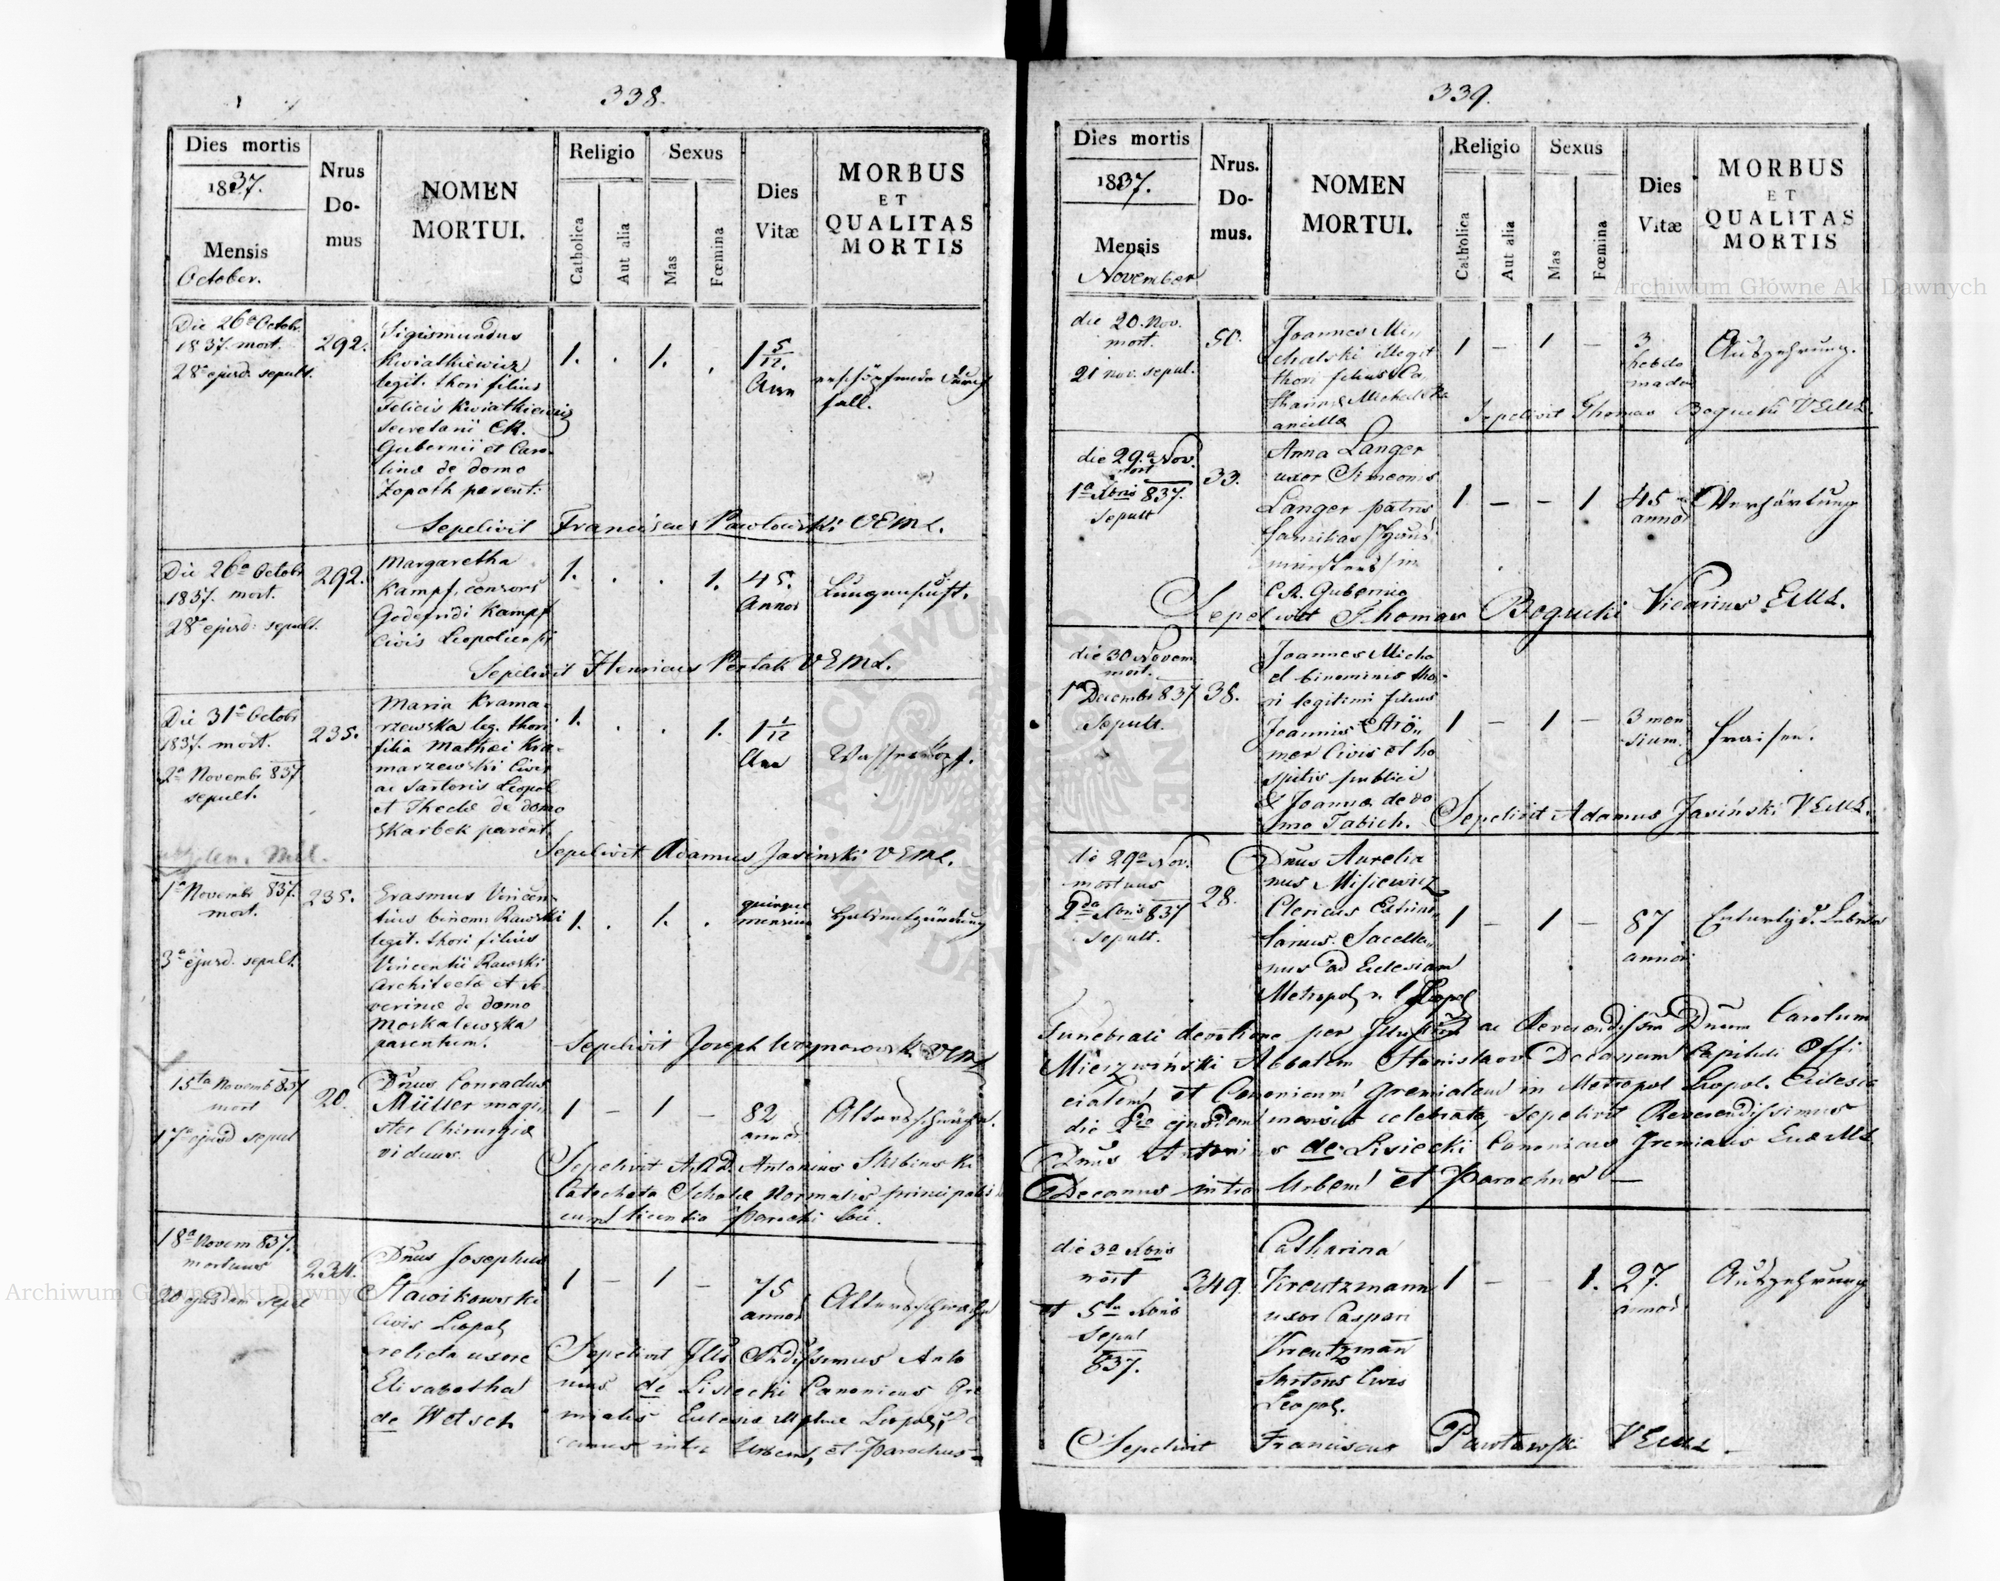 338.
Dies mortis
1837.
Mensis
October.
Nrus
Do-
mus
NOMEN
MORTUI.
Religio
Catholica
Aut alia
Sexus
Mas
Fœmina
Dies
Vitæ
MORBUS
ET
QUALITAS
MORTIS
Die 26a Octobr.
1837. mort.
28a ejusd. sepult.
292.
Sigismundus
Kwiatkiewicz
legit. thori filius
Felicis Kwiatkiewicz
Secretarii CR.
Gubernii et Caro-
linæ de domo
Zopoth parent:
1. . 1. .
1 5/12.
Ann
erschöpfender Durch
fall.
Sepelivit Franciscus Pawlowski VEML.
Die 26a Octobr
1837. mort.
28a ejusd: sepult.
292.
Margaretha
Kampf, consors
Godefridi Kampf
Civis Leopoliensis
1. . . 1.
45.
Annor
Lungensucht.
Sepelivit Henricus Portak VEML.
Die 31a Octobr
1837. mort.
2a Novembr 837
sepult.
235.
Maria Krama-
rzewska leg. thori
filia Mathæi Kra-
marzewski Civis
ac Sartoris Leopol
et Theclæ de domo
Skarbek parent.
1. . . 1.
1 1/12
Ann
Wasserkopf.
Sepelivit Adamus Jasinski VEML.
1a Novembr 837.
mort.
3a ejusd. sepult.
235.
Erasmus Vincen-
tius binom: Rawski
legit. thori filius
Vincentii Rawski
Architecta et Se-
verinæ de domo
Moskalewska
parentum.
1. . 1. .
quinque
mensium
Sepelivit Joseph VEML
15ta Novemb 837
mort
17a ejusd sepul
20.
Dnus Conradus
Müller magi-
ster Chirurgiæ
viduus.
1 – 1 –
82
annor.
Altersschwäche.
Sepelivit ARD Antonius Skibinski
Catecheta Scholæ Normalis principalis
cum licentia Parochi loci.
18a Novem 837.
mortuus
20 ejusdem sepul
234.
Dnus Josephus
Stawikowski
Civis Leopol
relicta uxore
Elisabetha
de Wetsch
1 – 1 –
75
annor
Altersschwäche
Sepelivit Ill. Rndissimus Anto
nius de Lisiecki Canonicus Gre
mialis Eclesiæ Mplnæ Leopol, De
canus intra Urbem, et Parochus –
339.
Dies mortis
1837.
Mensis
November
Nrus.
Do-
mus.
NOMEN
MORTUI.
Religio
Catholica
Aut alia
Sexus
Mas
Fœmina
Dies
Vitæ
MORBUS
ET
QUALITAS
MORTIS
die 20. Nov.
mort.
21 nov. sepul.
50.
Joannes Mi
chalski illegit
thori filius Ca
tharinæ Michalska
ancilla
1 – 1 –
3
hebdo
madar
Auszehrung.
Sepelivit Thomas Bogucki VEML.
die 29.a Nov.
mort
1a Xbris 837.
Sepult
33.
Anna Langer
uxor Simeonis
Langer patris
familias
in
C.R. Gubernio
1 – – 1
45
annor
Verhärtung
Sepelivit Thomas Bogucki Vicarius EML.
die 30 Novem
mort.
1a Decembr 837
Sepult.
38.
Joannes Micha
el binominis tho-
ri legitimi filius
Joannis Strö-
mer Civis et ho
spitis publici
& Joannæ de do
mo Tabich.
1 – 1 –
3 men
sium.
Fraisen.
Sepelivit Adamus Jasiński VEML.
die 29a Nov.
mortuus
2da Xbris 837
Sepult.
28.
Dnus Aurelia
nus Misiewicz
Clericus
Sacella-
nus ad Eclesiam
Metropol r. l. Leopol
1 – 1 –
87
annor
Funebrali devotione per Illustrem ac Reverendissm Dnum Carolum
Mierzwiński Abbatem Decanum Capituli Offi
cialem et Canonicum gremialem in Metropol Leopol. Eclesia
die 2da ejusdem mensis celebrata, sepelivit Reverendissimus
Dnus Antonius de Lisiecki Canonicus Gremialis
Decanus intra Urbem et Parochus —
die 3a Xbris
mort
et 5ta Xbris
Sepul
837.
349.
Catharina
Kreutzmann
uxor Caspari
Kreutzman
Sartoris Civis
Leopol.
1 – – 1.
27.
annor
Auszehrung
Sepelivit Franciscus Pawlowski VEML –
Archiwum Główne Akt Dawnych
Archiwum Główne Akt Dawnych
ARCHIWUM GŁÓWNE AKT DAWNYCH